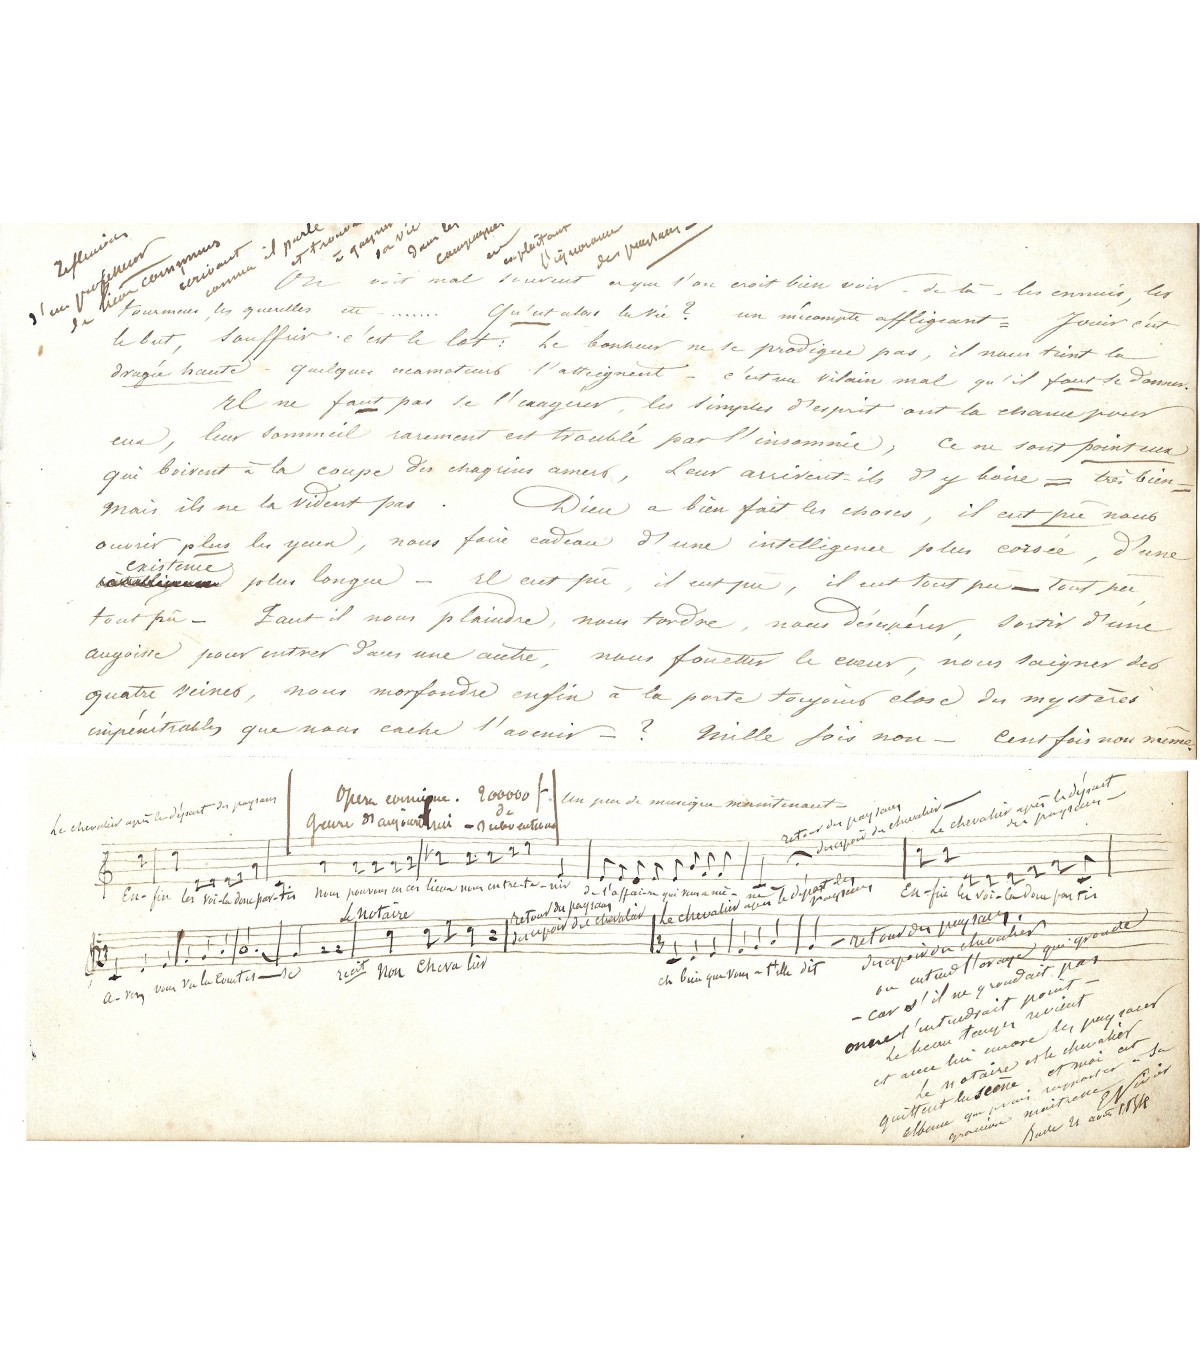 Réflexions
d'un professeur
de lieux communs
écrivant
comme il parle
et trouvant
à gagner
sa vie
dans les
campagnes
en
exploitant
l'ignorance
des paysans —
On voit mal souvent ce que l'on croit bien voir — de là — les ennuis, les
tourmens, les querelles etc ........ Qu'est alors la vie ? un mécompte affligeant = Jouir c'est
le but, souffrir c'est le lot : Le bonheur ne se prodigue pas, il nous tient la
dragée haute — quelques escamoteurs l'atteignent — c'est un vilain mal qu'il faut se donner.
Il ne faut pas se l'exagérer, les simples d'esprit ont la chance pour
eux, leur sommeil rarement est troublé par l'insomnie, ce ne sont point eux
qui boivent à la coupe des chagrins amers, Leur arrivent-ils d'y boire = très bien —
mais ils ne la vident pas . Dieu a bien fait les choses, il eut pu nous
ouvrir plus les yeux, nous faire cadeau d'une intelligence plus corsée, d'une
existence
plus longue — Il eut pu, il eut pu, il eut tout pu — tout pu,
tout pu — Faut il nous plaindre, nous tordre, nous désespérer, sortir d'une
angoisse pour entrer dans une autre, nous fouetter le cœur, nous saigner des
quatre veines, nous morfondre enfin à la porte toujours close des mystères
impénétrables que nous cache l'avenir — ? Mille fois non — Cent fois non même.
Le chevalier après le départ des paysans
Opera comique. 200000 f.
de
Genre d'aujourd'hui — subvention
Un peu de musique maintenant —
retour des paysans
désespoir du chevalier —
Le chevalier après le départ
des paysans —
En-fin les voi-la donc par-tis nous pouvons en ces lieux nous entre-te-nir de l'affai-re qui vous a mè-ne
Le chevalier après le départ des
paysans
En-fin les voi-la donc partis
Le Notaire
retour des paysans
désespoir du chevalier
a-vez vous vu la Comtes-se
récit Non Chevalier
eh bien que vous a t'elle dit
— retour des paysans,
désespoir du chevalier
on entend l'orage qui gronde
— car s'il ne grondait pas
on ne l'entendrait point —
Le beau temps revient
et avec lui encore les paysans
Le notaire et le chevalier
quittent la scène et moi cet
album que je vais rapporter à sa
gracieuse maitresse
août